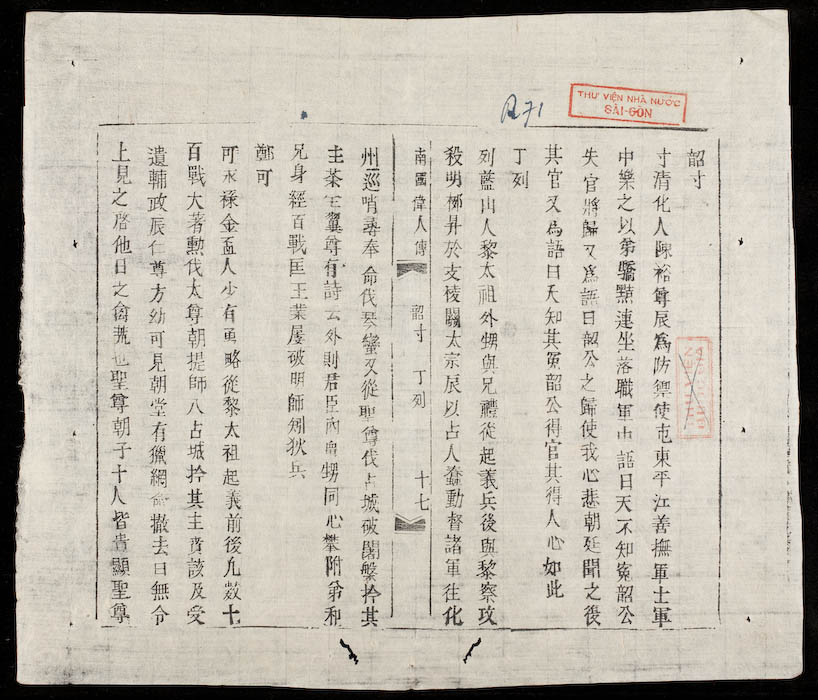 R71
THƯ VIỆN NHÀ NƯỚC
SÀI-GÒN
韶寸
寸清化人陳裕尊辰爲防禦使屯東平江善撫軍士軍
中樂之以弟驕黠連坐落職軍中語曰天不知寃韶公
失官將歸又爲語曰韶公之歸使我心悲朝廷聞之後
其官又爲語曰天知其寃韶公得官其得人心如此
丁列
列藍山人黎太祖外甥與兄禮從起義兵後與黎察攻
殺明柳昇於支棱關太宗辰以占人蠢動督諸軍往化
南國偉人傳 韶寸 丁列 十七
州巡哨尋奉命伐琴蠻又從聖尊伐占城破闍槃拎其
主茶全翼尊有詩云外則君臣內舅甥同心攀附弟和
兄身經百戰匡王業屢破明師剿狄兵
鄭可
可永祿金盃人少有勇略從黎太祖起義前後凡數十
百戰大著勳伐太尊朝提師入占城拎其主賁該及受
遺輔政辰仁尊方幼可見朝堂有獵網命撤去曰無令
上見之啓他日之禽荒也聖尊朝子十人皆貴顯聖尊